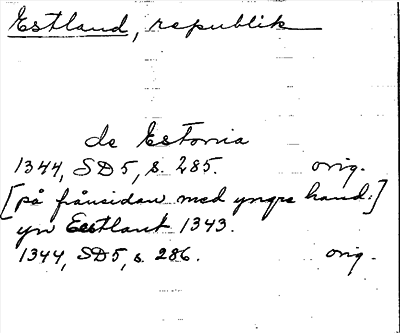 Estland, republik
de Estonia
1344, SD5, s. 285. orig.
[på frånsidan med yngre hand:]
yn Eestlant 1343.
1344, SD5, s. 286. orig.